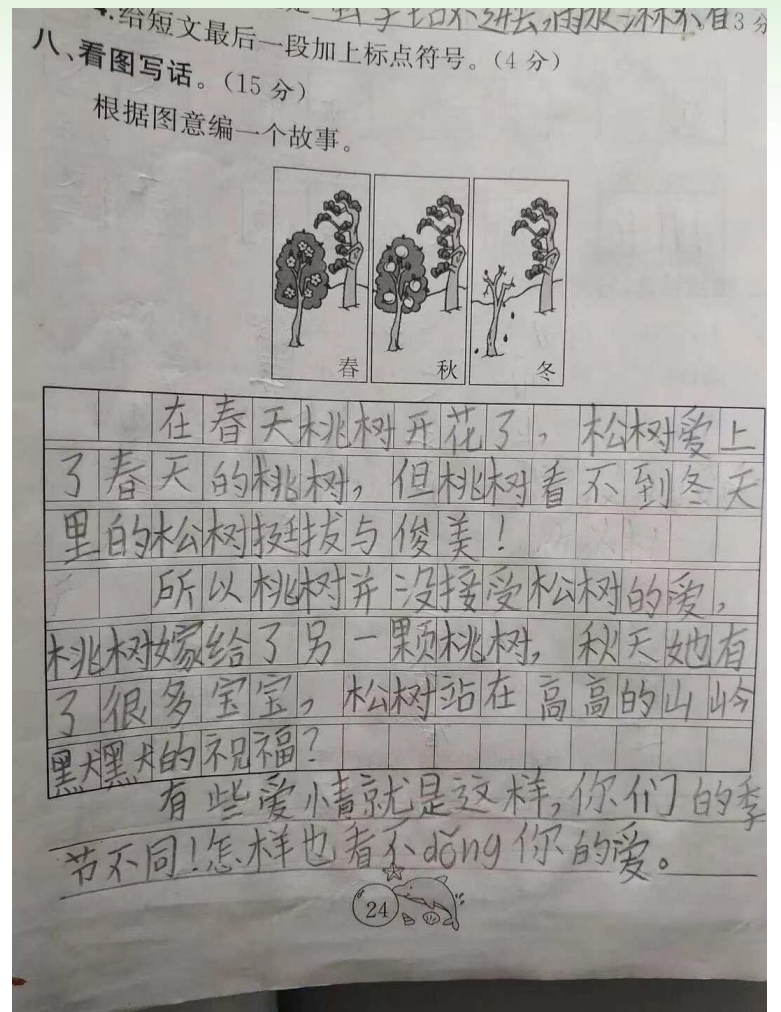 4.给短文最后一段加上标点符号。(4分)
八、看图写话。(15分)
根据图意编一个故事。
春 秋 冬
在春天桃树开花了，松树爱上
了春天的桃树，但桃树看不到冬天
里的松树挺拔与俊美！
所以桃树并没接受松树的爱，
桃树嫁给了另一颗桃树，秋天她有
了很多宝宝，松树站在高高的山岭
默默的祝福？
有些爱情就是这样，你们的季
节不同！怎样也看不dǒng你的爱。
24